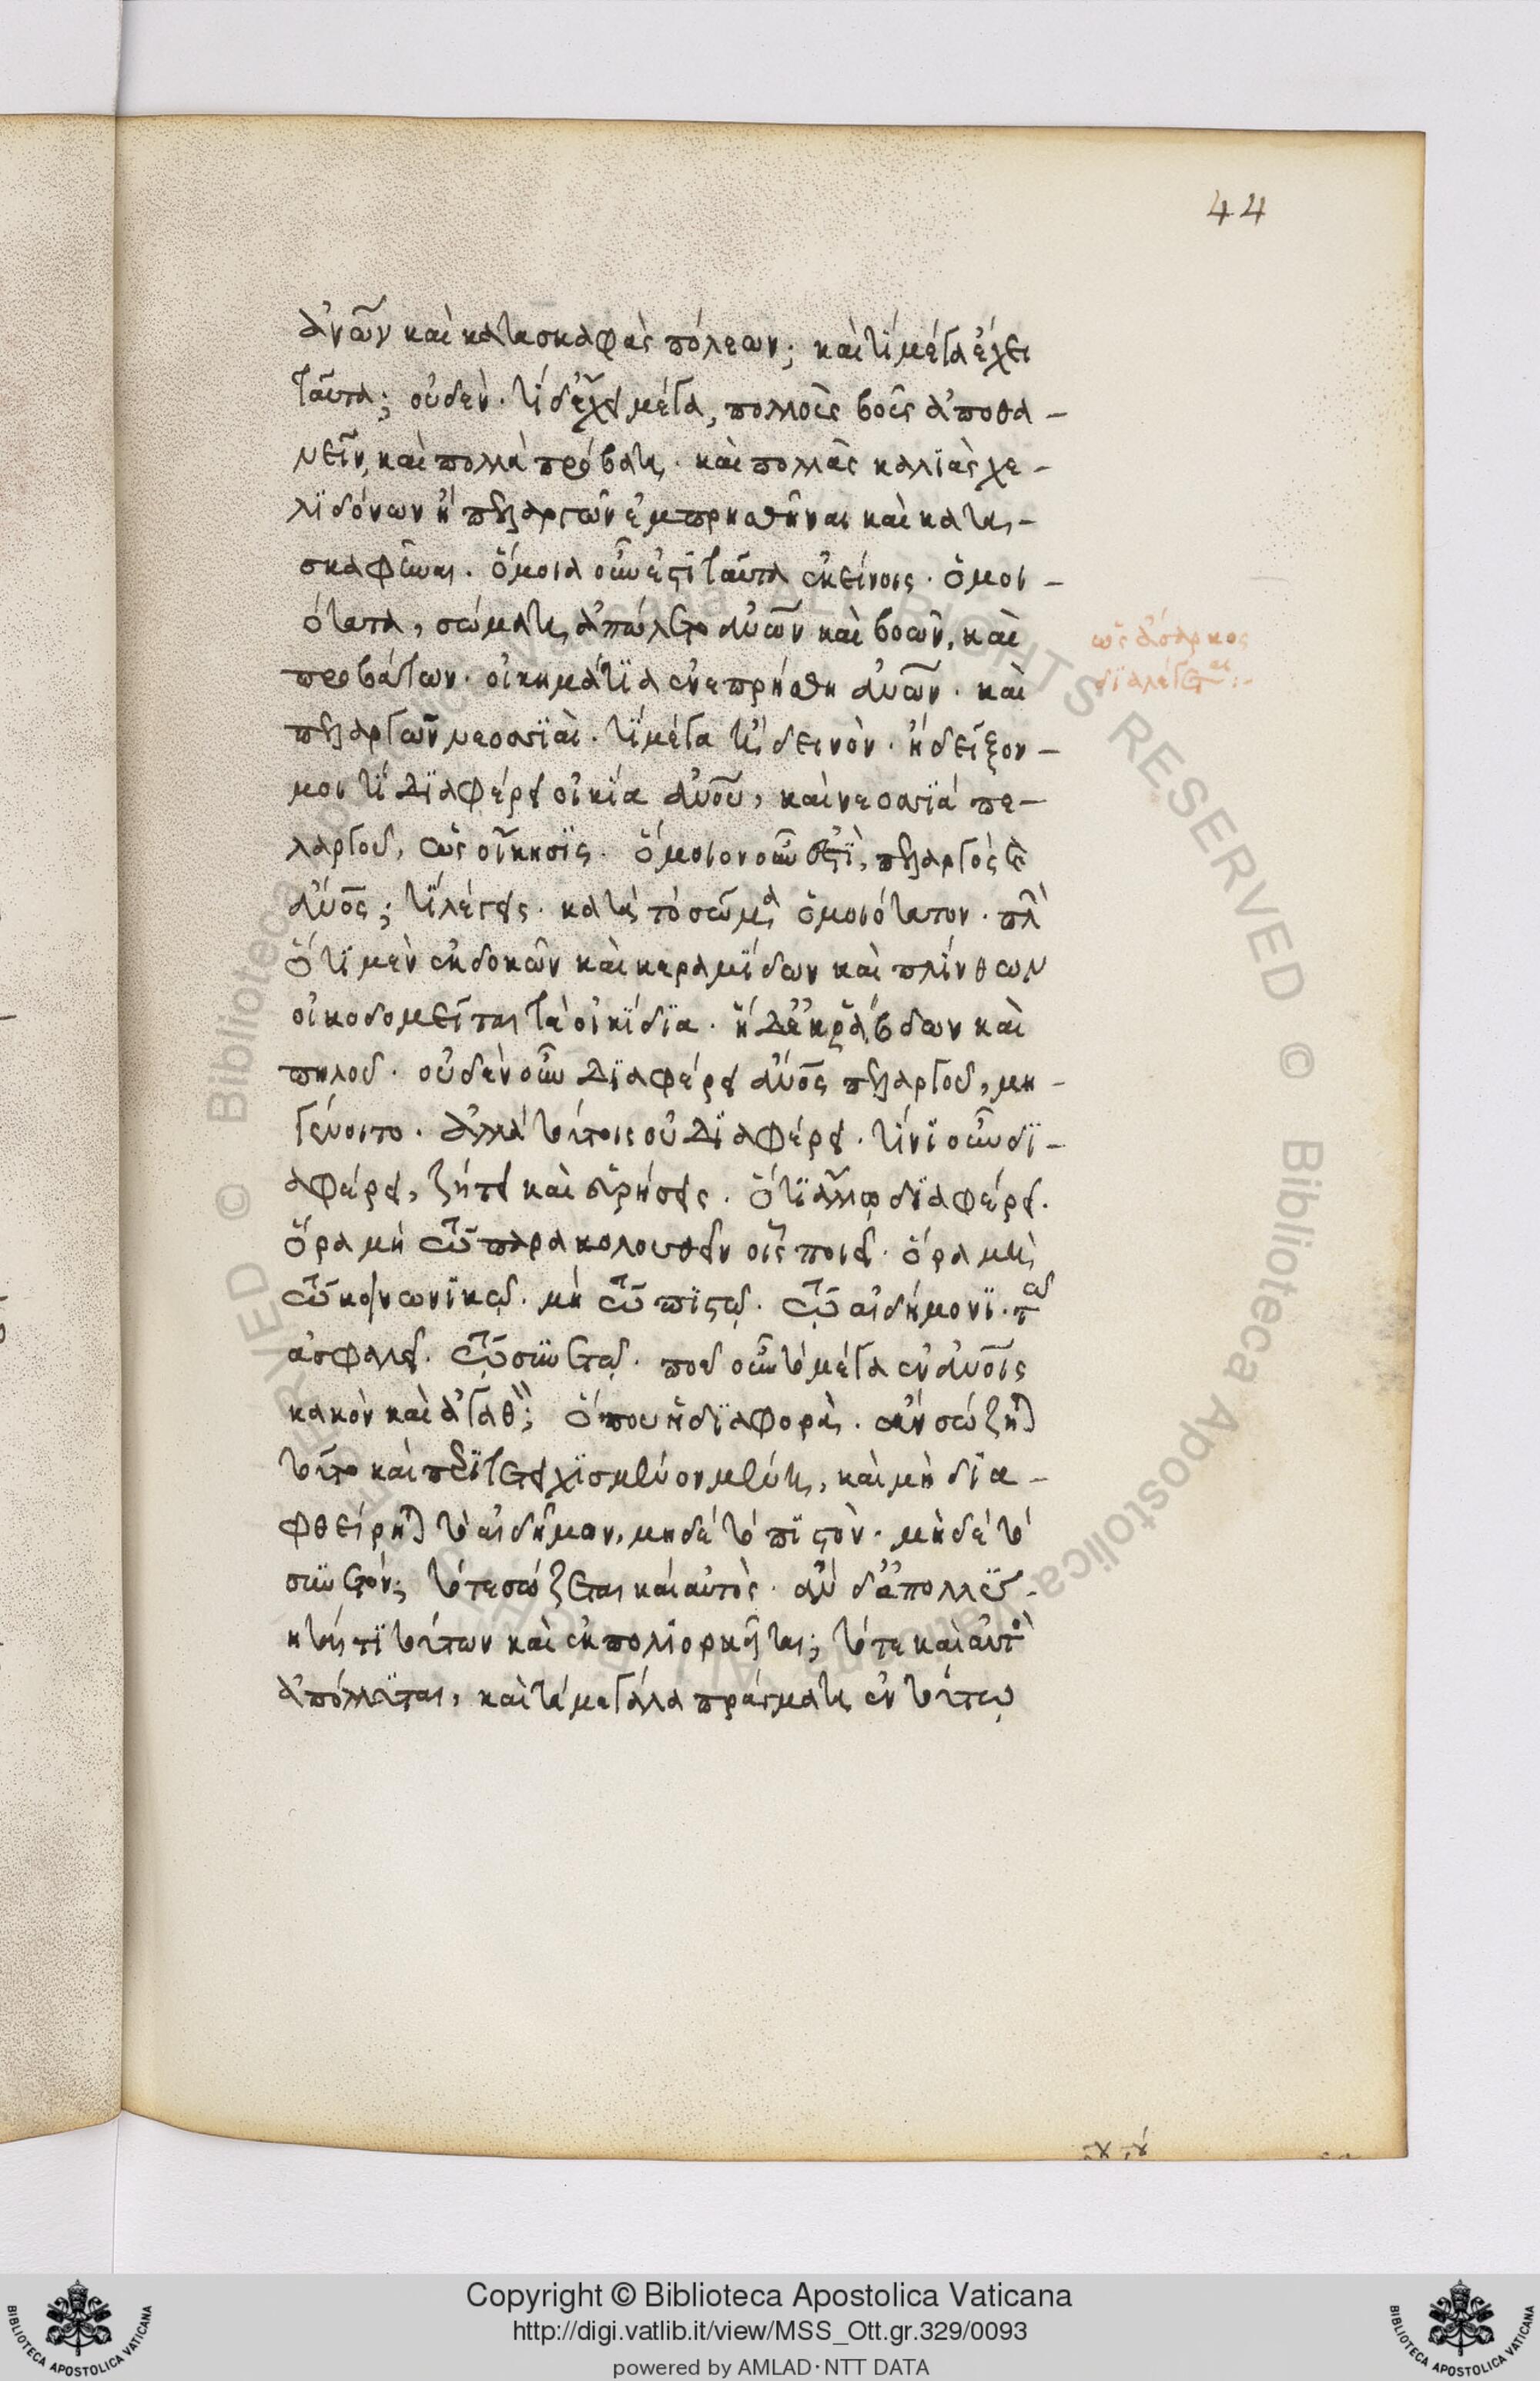 44
ἀνῶν καὶ κατασκαφὰς πόλεων; καὶ τί μέγα ἔχει
ταῦτα; οὐδέν· τί δ' ἔχει μέγα, πολλοὺς βοῦς ἀποθα-
νεῖν, καὶ πολλὰ πρόβατα· καὶ πολλὰς καλϊὰς χε-
λϊδόνων ἢ πελαργῶν ἐμπρησθῆναι καὶ κατα-
σκαφῆναι. ὅμοια οὖν ἐστὶ ταῦτα ἐκείνοις· ὁμοι-
ότατα, σώματα ἀπώλετο ἀνῶν καὶ βοῶν, καὶ
προβάτων· οἰκημάτϊα ἐνεπρήσθη ἀνῶν· καὶ
πελαργῶν νεοσσϊαὶ· τί μέγα τί δεινὸν· ἢ δεῖξον-
μοι τί διαφέρει οἰκία ἀνοῦ, καὶ νεοσσϊὰ πε-
λαργοῦ, ὡς οἴκησϊς· ὅμοιον οὖν ἐστὶ, πελαργὸς καὶ
ἄνος; τί λέγεις· κατὰ τὸ σῶμα ὁμοιότατον· πλὴν
ὅτϊ μὲν ἐκ δοκῶν καὶ κεραμίδων καὶ πλίνθων
οἰκοδομεῖται τὰ οἰκίδϊα· ἡ δὲ ἐκ ῥάβδων καὶ
πηλοῦ· οὐδὲν οὖν διαφέρει ἄνος πελαργοῦ, μὴ-
γένοιτο· ἀλλὰ τούτοις οὐ διαφέρει· τίνϊ οὖν δϊ-
αφέρει, ζήτει καὶ εὑρήσεις· ὅτϊ ἄλλῳ δϊαφέρει·
ὅρα μὴ τῷ παρακολουθεῖν οἷς ποιεῖ· ὅρα μὴ
τῷ κοινωνϊκῷ· μὴ τῷ πϊστῷ· τῷ αἰδήμονϊ· τῷ
ἀσφαλεῖ· τῷ συνετῷ· ποῦ οὖν τὸ μέγα ἐν ἀνοῖς
κακὸν καὶ ἀγαθόν; ὅπου ἡ δϊαφορὰ· ἐὰν σώζηται
τοῦτο καὶ περιτετειχϊσμένον μένῃ, καὶ μὴ δϊα-
φθείρηται τὸ αἰδῆμον, μηδὲ τὸ πϊστὸν· μηδὲ τὸ
συνετόν; τότε σώζεται καὶ αὐτὸς· ἂν δ' ἀπολλύ-
ηταί τϊ τούτων καὶ ἐκπολϊορκῆται; τότε καὶ αὐτὸς
ἀπόλλυται, καὶ τὰ μεγάλα πράγματα ἐν τούτῳ
ὡς ἄσαρκος
δϊαλέγεται:-
Copyright © Biblioteca Apostolica Vaticana
http://digi.vatlib.it/view/MSS_Ott.gr.329/0093
powered by AMLAD·NTT DATA